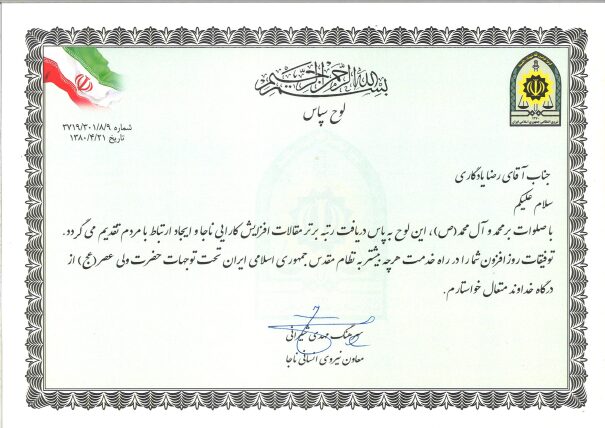 بسم الله الرحمن الرحیم
لوح سپاس
شماره ۳۷۱۹/۳۰۱/۸/۹
تاریخ ۱۳۸۰/۴/۲۱
جناب آقای رضا یادگاری
سلام علیکم
با صلوات بر محمد و آل محمد (ص)، این لوح به پاس دریافت رتبه برتر مقالات افزایش کارایی ناجا و ایجاد ارتباط با مردم تقدیم می گردد.
توفیقات روز افزون شما را در راه خدمت هرچه بیشتر به نظام مقدس جمهوری اسلامی ایران تحت توجهات حضرت ولی عصر (عج) از
درگاه خداوند متعال خواستارم.
سرهنگ مهدی
معاون نیروی انسانی ناجا